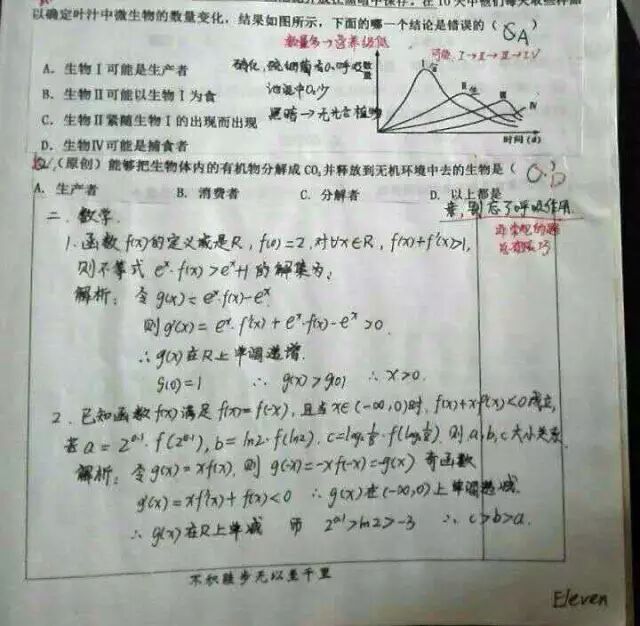 以确定叶汁中微生物的数量变化，结果如图所示，下面的哪一个结论是错误的（ A）
数量多→营养级低
可能 I→II→III→IV
A．生物Ⅰ可能是生产者
B．生物Ⅱ可能以生物Ⅰ为食
C．生物Ⅱ紧随生物Ⅰ的出现而出现
D．生物Ⅳ可能是捕食者
黑暗→无光合植物
数量
I
II
III
IV
时间(d)
（原创）能够把生物体内的有机物分解成CO₂并释放到无机环境中去的生物是（ D）
A．生产者 B．消费者 C．分解者 D．以上都是
别忘了呼吸作用
二、数学.
1.函数f(x)的定义域是R，f(0)=2,对∀x∈R，f(x)+f'(x)>1,
则不等式 eˣ·f(x)>eˣ+1的解集为:
解析：令g(x)=eˣ·f(x)-eˣ
则g'(x)=eˣ·f'(x)+eˣ·f(x)-eˣ>0.
∴g(x)在R上单调递增.
g(0)=1 ∴g(x)>g(0) ∴x>0.
2.已知函数f(x)满足f(x)=f(-x)，且当x∈(-∞,0)时，f(x)+xf'(x)<0成立,
若a=2^0.1·f(2^0.1),b=ln2·f(ln2),c=log₂⅛·f(log₂⅛),则a,b,c大小关系
解析：令g(x)=xf(x)，则g(-x)=-xf(-x)=-g(x) 奇函数
g'(x)=xf'(x)+f(x)<0 ∴g(x)在(-∞,0)上单调递减.
∴g(x)在R上单减 而 2^0.1>ln2>-3 ∴c>b>a.
不积跬步无以至千里
Eleven